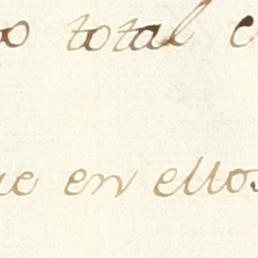 total
en ellos